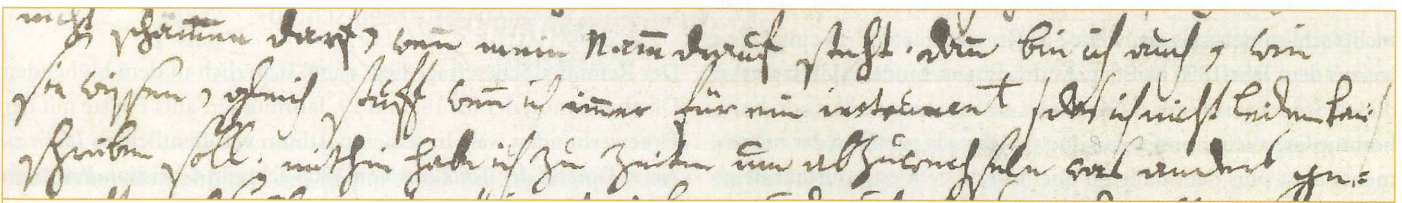 nicht schämen darf, wenn mein Nam drauf steht. dann bin ich auch, wie
sie wissen, gleich stuff wenn ich immer für ein instrument /das ich nicht leiden kan:/
schreiben soll. mithin habe ich zu zeiten um abzuwechseln was anders ge=